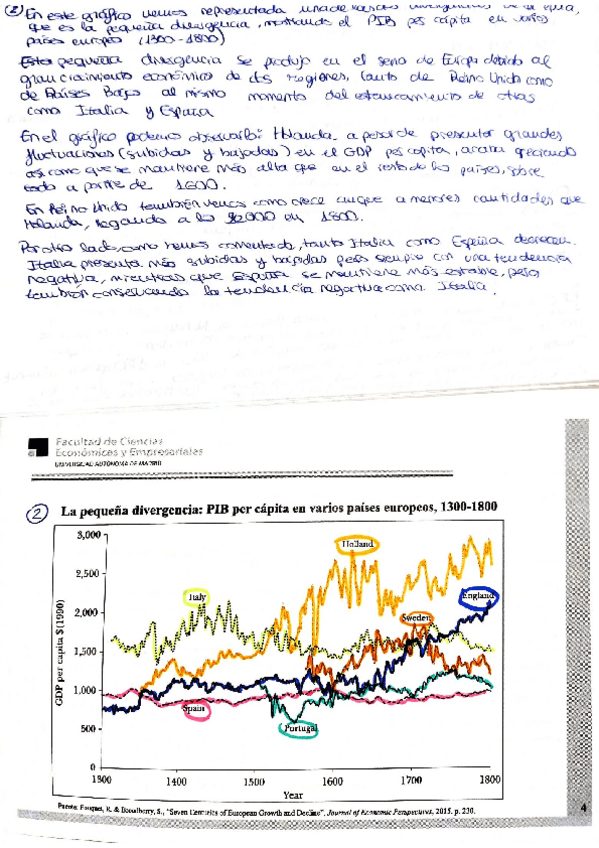 ② En este gráfico vemos representada una de las
que es la pequeña divergencia, mostrando el PIB per cápita en varios
países europeos (1300-1800)
Esta pequeña divergencia se produjo en el seno de Europa debido al
gran crecimiento económico de dos regiones, tanto de Reino Unido como
de Países Bajos al mismo momento del estancamiento de otras
como Italia y España
En el gráfico podemos observar Holanda a pesar de presentar grandes
fluctuaciones (subidas y bajadas) en el GDP per cápita, acaba creciendo
así como que se mantiene más alta que en el resto de los países, sobre
todo a partir de 1600.
En Reino Unido también vemos como crece aunque a menores cantidades que
Holanda, llegando a los 2000 en 1800.
Por otro lado, como hemos comentado, tanto Italia como España decrecen.
Italia presenta más subidas y bajadas pero siempre con una tendencia
negativa, mientras que España se mantiene más estable, pero
también conservando la tendencia negativa como Italia.
Facultad de Ciencias
Económicas y Empresariales
UNIVERSIDAD AUTÓNOMA DE MADRID
② La pequeña divergencia: PIB per cápita en varios países europeos, 1300-1800
3,000
Holland
2,500
Italy
England
2,000
Sweden
1,500
1,000
Spain
500
Portugal
0
GDP per capita $(1990)
1300 1400 1500 1600 1700 1800
Year
Fuente: Fouquet, R. & Broadberry, S., "Seven Centuries of European Growth and Decline", Journal of Economic Perspectives, 2015, p. 230.
4